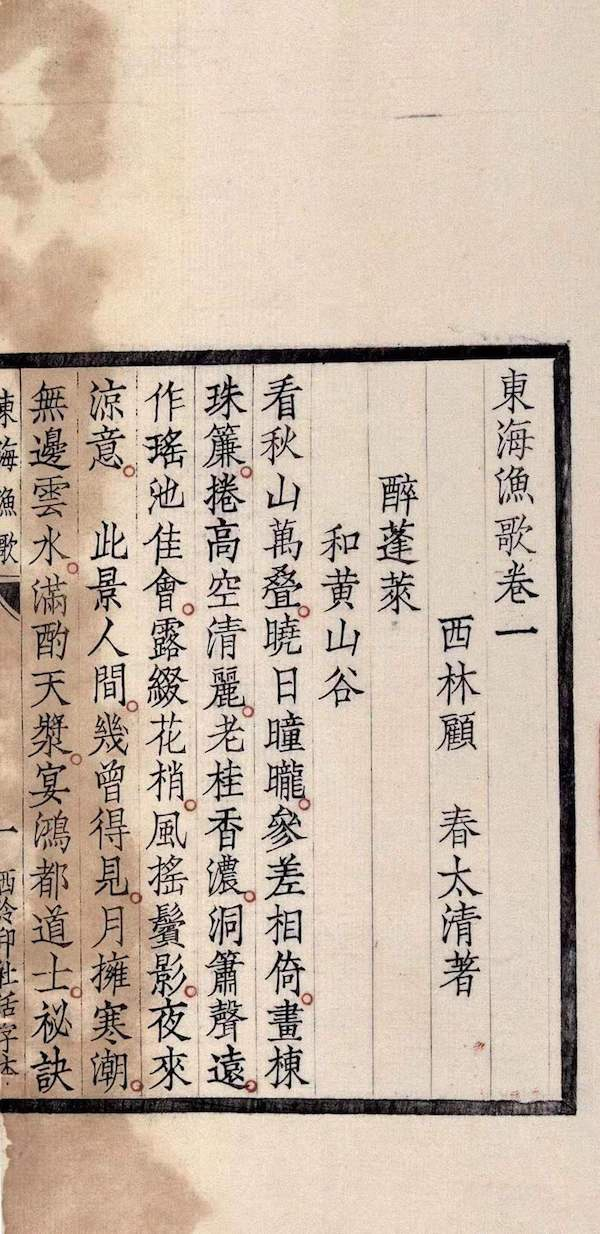 東海漁歌卷一
西林顧　春太清著
醉蓬萊
和黃山谷
看秋山萬叠。曉日曈曨。參差相倚。畫棟
珠簾。捲高空清麗。老桂香濃。洞簫聲遠。
作瑤池佳會。露綴花梢。風搖鬢影。夜來
涼意。　此景人間。幾曾得見。月擁寒潮。
無邊雲水。滿酌天漿。宴鴻都道士。祕訣
東海漁歌
一
西泠印社活字本